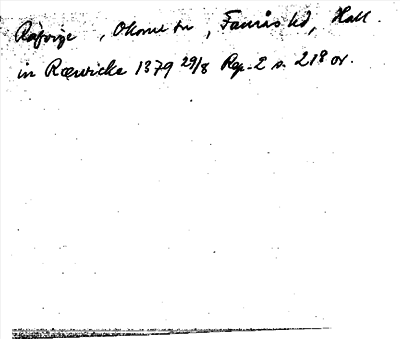 Rävinge , Okome sn , Faurås hd, Hall.
in Rœwicke 1379 29/8 Rep. 2 s. 218 or.